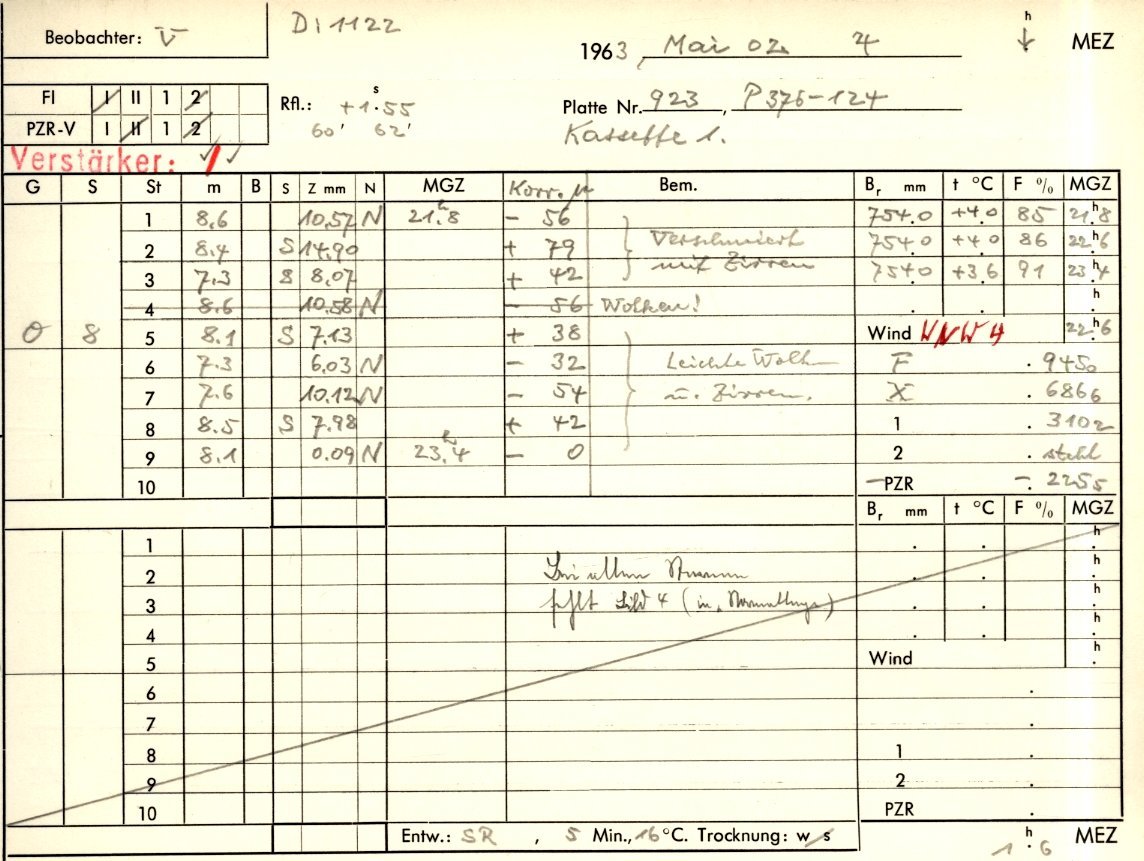 Beobachter: V
Di 1122
1963, Mai 02. 4 h MEZ
FI I II 1 2
PZR-V I II 1 2
Rfl.: +1.55 s
60' 62'
Platte Nr. 923, P376-124
Kassette 1.
Verstärker:
G S St m B S Z mm N MGZ Korr. μ Bem. Br mm t °C F % MGZ
1 8.6 10.57 N 21.h8 - 56 754.0 +4.0 85 21.h8
2 8.4 S 14.90 + 79 Verschmiert 754.0 +4.0 86 22.h6
3 7.3 S 8.07 + 42 mit Zirren 754.0 +3.6 91 23.h4
4 8.6 10.58 N - 56 Wolken! . . h
0 8 5 8.1 S 7.13 + 38 Wind WNW 4 22.h6
6 7.3 6.03 N - 32 Leichte Wolk F . 9450
7 7.6 10.12 N - 54 u. Zirren. X . 6866
8 8.5 S 7.98 + 42 1 . 3102
9 8.1 0.09 N 23.h4 - 0 2 . steht
10 PZR -. 2255
Br mm t °C F % MGZ
1 . . h
2 Bei allen Sternen . . h
3 fehlt Bild 4 (in ) . . h
4 . . h
5 Wind h
6 .
7 .
8 1 .
9 2 .
10 PZR .
Entw.: SR, 5 Min., 16 °C. Trocknung: w/s 1 h. 6 MEZ